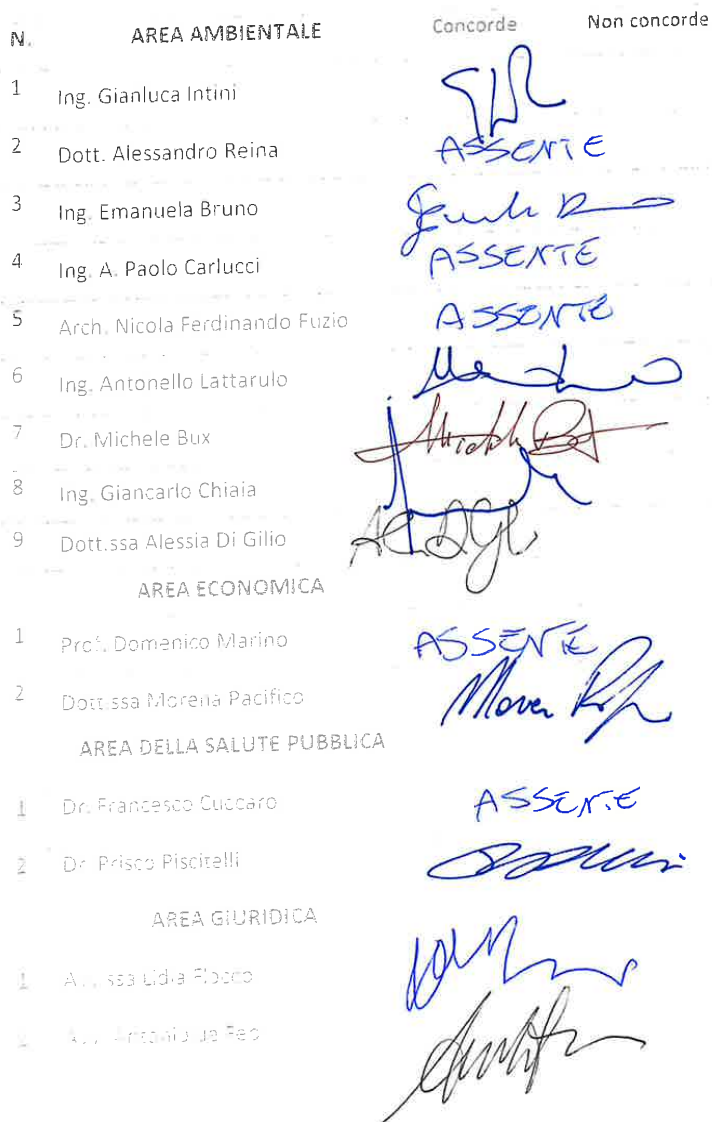 N. AREA AMBIENTALE Concorde Non concorde
1 Ing. Gianluca Intini
2 Dott. Alessandro Reina ASSENTE
3 Ing. Emanuela Bruno
4 Ing. A. Paolo Carlucci ASSENTE
5 Arch. Nicola Ferdinando Fuzio ASSENTE
6 Ing. Antonello Lattarulo
7 Dr. Michele Bux
8 Ing. Giancarlo Chiaia
9 Dott.ssa Alessia Di Gilio
AREA ECONOMICA
1 Prof. Domenico Marino ASSENTE
2 Dott.ssa Morena Pacifico
AREA DELLA SALUTE PUBBLICA
1 Dr. Francesco Cuccaro ASSENTE
2 Dr. Prisco Piscitelli
AREA GIURIDICA
1 Lidia Flocco
2 Antonio de Feo